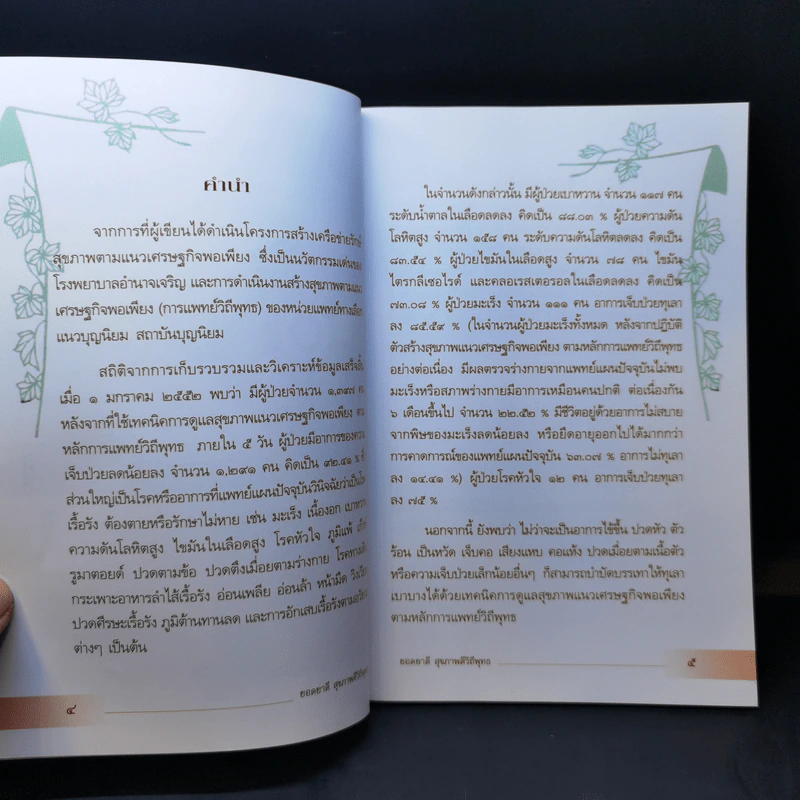 คำนำ
จากการที่ผู้เขียนได้ดำเนินโครงการสร้างเครือข่ายรักษ์
สุขภาพตามแนวเศรษฐกิจพอเพียง ซึ่งเป็นนวัตกรรมเด่นของ
โรงพยาบาลอำนาจเจริญ และการดำเนินงานสร้างสุขภาพตามแนว
เศรษฐกิจพอเพียง (การแพทย์วิถีพุทธ) ของหน่วยแพทย์ทางเลือก
แนวบุญนิยม สถาบันบุญนิยม
สถิติจากการเก็บรวบรวมและวิเคราะห์ข้อมูลเสร็จสิ้น
เมื่อ ๑ มกราคม ๒๕๕๒ พบว่า มีผู้ป่วยจำนวน ๑,๓๙๗ คน
หลังจากที่ใช้เทคนิคการดูแลสุขภาพแนวเศรษฐกิจพอเพียง ตาม
หลักการแพทย์วิถีพุทธ ภายใน ๕ วัน ผู้ป่วยมีอาการของความ
เจ็บป่วยลดน้อยลง จำนวน ๑,๒๙๑ คน คิดเป็น ๙๒.๔๑ %
ส่วนใหญ่เป็นโรคหรืออาการที่แพทย์แผนปัจจุบันวินิจฉัยว่าเป็นโรค
เรื้อรัง ต้องตายหรือรักษาไม่หาย เช่น มะเร็ง เนื้องอก เบาหวาน
ความดันโลหิตสูง ไขมันในเลือดสูง โรคหัวใจ ภูมิแพ้
รูมาตอยด์ ปวดตามข้อ ปวดตึงเมื่อยตามร่างกาย โรคทางเดิน
กระเพาะอาหารลำไส้เรื้อรัง อ่อนเพลีย อ่อนล้า หน้ามืด วิงเวียน
ปวดศีรษะเรื้อรัง ภูมิต้านทานลด และการอักเสบเรื้อรังตามอวัยวะ
ต่างๆ เป็นต้น
ยอดยาดี สุขภาพดีวิถีพุทธ
๔
ในจำนวนดังกล่าวนั้น มีผู้ป่วยเบาหวาน จำนวน ๑๑๗ คน
ระดับน้ำตาลในเลือดลดลง คิดเป็น ๘๘.๐๓ % ผู้ป่วยความดัน
โลหิตสูง จำนวน ๑๕๘ คน ระดับความดันโลหิตลดลง คิดเป็น
๘๓.๕๔ % ผู้ป่วยไขมันในเลือดสูง จำนวน ๗๘ คน ไขมัน
ไตรกลีเซอไรด์ และคลอเรสเตอรอลในเลือดลดลง คิดเป็น
๗๓.๐๘ % ผู้ป่วยมะเร็ง จำนวน ๑๑๑ คน อาการเจ็บป่วยทุเลา
ลง ๘๕.๕๙ % (ในจำนวนผู้ป่วยมะเร็งทั้งหมด หลังจากปฏิบัติ
ตัวสร้างสุขภาพแนวเศรษฐกิจพอเพียง ตามหลักการแพทย์วิถีพุทธ
อย่างต่อเนื่อง มีผลตรวจร่างกายจากแพทย์แผนปัจจุบันไม่พบ
มะเร็งหรือสภาพร่างกายมีอาการเหมือนคนปกติ ต่อเนื่องกัน
๖ เดือนขึ้นไป จำนวน ๒๒.๕๒ % มีชีวิตอยู่ด้วยอาการไม่สบาย
จากพิษของมะเร็งลดน้อยลง หรือยืดอายุออกไปได้มากกว่า
การคาดการณ์ของแพทย์แผนปัจจุบัน ๖๓.๐๗ % อาการไม่ทุเลา
ลง ๑๔.๔๑ %) ผู้ป่วยโรคหัวใจ ๑๒ คน อาการเจ็บป่วยทุเลา
ลง ๗๕ %
นอกจากนี้ ยังพบว่า ไม่ว่าจะเป็นอาการไข้ขึ้น ปวดหัว ตัว
ร้อน เป็นหวัด เจ็บคอ เสียงแหบ คอแห้ง ปวดเมื่อยตามเนื้อตัว
หรือความเจ็บป่วยเล็กน้อยอื่นๆ ก็สามารถบำบัดบรรเทาให้ทุเลา
เบาบางได้ด้วยเทคนิคการดูแลสุขภาพแนวเศรษฐกิจพอเพียง
ตามหลักการแพทย์วิถีพุทธ
ยอดยาดี สุขภาพดีวิถีพุทธ
๕